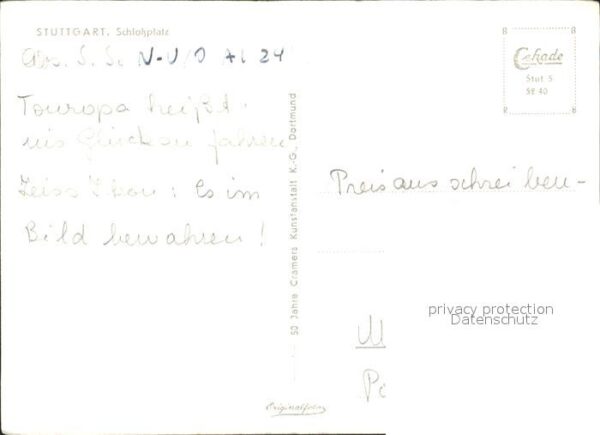 STUTTGART. Schloßplatz
Abs. S. S. N-U/O A1 24
Touropa heißt
ins Glück zu fahren,
Zeiss Ikon: Es im
Bild bewahren!
50 Jahre Cramers Kunstanstalt K.-G., Dortmund
Originalfoto
Cekade
Stut 5.
SE 40
Preisausschreiben-
privacy protection
Datenschutz